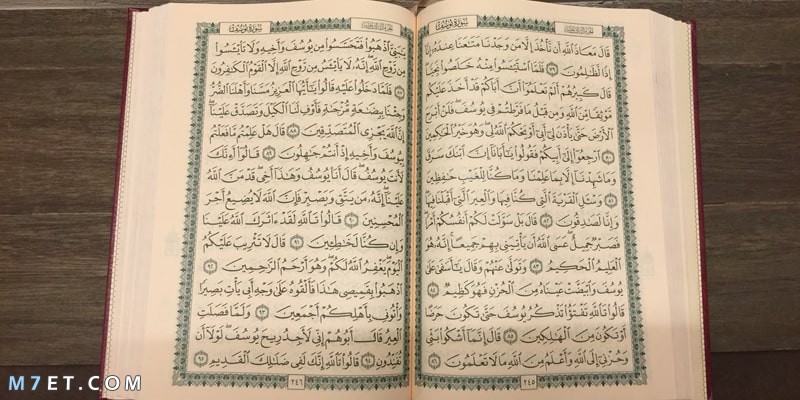 سورة يوسف
قَالَ مَعَاذَ ٱللَّهِ أَن نَّأْخُذَ إِلَّا مَن وَجَدْنَا مَتَٰعَنَا عِندَهُۥٓ إِنَّآ
إِذًا لَّظَٰلِمُونَ ٧٩ فَلَمَّا ٱسْتَيْـَٔسُوا۟ مِنْهُ خَلَصُوا۟ نَجِيًّا
قَالَ كَبِيرُهُمْ أَلَمْ تَعْلَمُوٓا۟ أَنَّ أَبَاكُمْ قَدْ أَخَذَ عَلَيْكُم
مَّوْثِقًا مِّنَ ٱللَّهِ وَمِن قَبْلُ مَا فَرَّطتُمْ فِى يُوسُفَ فَلَنْ أَبْرَحَ
ٱلْأَرْضَ حَتَّىٰ يَأْذَنَ لِىٓ أَبِىٓ أَوْ يَحْكُمَ ٱللَّهُ لِى وَهُوَ خَيْرُ ٱلْحَٰكِمِينَ
٨٠ ٱرْجِعُوٓا۟ إِلَىٰٓ أَبِيكُمْ فَقُولُوا۟ يَٰٓأَبَانَآ إِنَّ ٱبْنَكَ سَرَقَ
وَمَا شَهِدْنَآ إِلَّا بِمَا عَلِمْنَا وَمَا كُنَّا لِلْغَيْبِ حَٰفِظِينَ
٨١ وَسْـَٔلِ ٱلْقَرْيَةَ ٱلَّتِى كُنَّا فِيهَا وَٱلْعِيرَ ٱلَّتِىٓ أَقْبَلْنَا فِيهَا
وَإِنَّا لَصَٰدِقُونَ ٨٢ قَالَ بَلْ سَوَّلَتْ لَكُمْ أَنفُسُكُمْ أَمْرًا
فَصَبْرٌ جَمِيلٌ عَسَى ٱللَّهُ أَن يَأْتِيَنِى بِهِمْ جَمِيعًا إِنَّهُۥ هُوَ
ٱلْعَلِيمُ ٱلْحَكِيمُ ٨٣ وَتَوَلَّىٰ عَنْهُمْ وَقَالَ يَٰٓأَسَفَىٰ عَلَىٰ
يُوسُفَ وَٱبْيَضَّتْ عَيْنَاهُ مِنَ ٱلْحُزْنِ فَهُوَ كَظِيمٌ ٨٤
قَالُوا۟ تَٱللَّهِ تَفْتَؤُا۟ تَذْكُرُ يُوسُفَ حَتَّىٰ تَكُونَ حَرَضًا
أَوْ تَكُونَ مِنَ ٱلْهَٰلِكِينَ ٨٥ قَالَ إِنَّمَآ أَشْكُوا۟ بَثِّى
وَحُزْنِىٓ إِلَى ٱللَّهِ وَأَعْلَمُ مِنَ ٱللَّهِ مَا لَا تَعْلَمُونَ ٨٦
٢٤٥
سورة يوسف
يَٰبَنِىَّ ٱذْهَبُوا۟ فَتَحَسَّسُوا۟ مِن يُوسُفَ وَأَخِيهِ وَلَا تَا۟يْـَٔسُوا۟
مِن رَّوْحِ ٱللَّهِ إِنَّهُۥ لَا يَا۟يْـَٔسُ مِن رَّوْحِ ٱللَّهِ إِلَّا ٱلْقَوْمُ ٱلْكَٰفِرُونَ
٨٧ فَلَمَّا دَخَلُوا۟ عَلَيْهِ قَالُوا۟ يَٰٓأَيُّهَا ٱلْعَزِيزُ مَسَّنَا وَأَهْلَنَا ٱلضُّرُّ
وَجِئْنَا بِبِضَٰعَةٍ مُّزْجَىٰةٍ فَأَوْفِ لَنَا ٱلْكَيْلَ وَتَصَدَّقْ عَلَيْنَآ
إِنَّ ٱللَّهَ يَجْزِى ٱلْمُتَصَدِّقِينَ ٨٨ قَالَ هَلْ عَلِمْتُم مَّا فَعَلْتُم
بِيُوسُفَ وَأَخِيهِ إِذْ أَنتُمْ جَٰهِلُونَ ٨٩ قَالُوٓا۟ أَءِنَّكَ
لَأَنتَ يُوسُفُ قَالَ أَنَا۠ يُوسُفُ وَهَٰذَآ أَخِى قَدْ مَنَّ ٱللَّهُ
عَلَيْنَآ إِنَّهُۥ مَن يَتَّقِ وَيَصْبِرْ فَإِنَّ ٱللَّهَ لَا يُضِيعُ أَجْرَ
ٱلْمُحْسِنِينَ ٩٠ قَالُوا۟ تَٱللَّهِ لَقَدْ ءَاثَرَكَ ٱللَّهُ عَلَيْنَا
وَإِن كُنَّا لَخَٰطِـِٔينَ ٩١ قَالَ لَا تَثْرِيبَ عَلَيْكُمُ
ٱلْيَوْمَ يَغْفِرُ ٱللَّهُ لَكُمْ وَهُوَ أَرْحَمُ ٱلرَّٰحِمِينَ ٩٢
ٱذْهَبُوا۟ بِقَمِيصِى هَٰذَا فَأَلْقُوهُ عَلَىٰ وَجْهِ أَبِى يَأْتِ بَصِيرًا
وَأْتُونِى بِأَهْلِكُمْ أَجْمَعِينَ ٩٣ وَلَمَّا فَصَلَتِ
ٱلْعِيرُ قَالَ أَبُوهُمْ إِنِّى لَأَجِدُ رِيحَ يُوسُفَ لَوْلَآ أَن
تُفَنِّدُونِ ٩٤ قَالُوا۟ تَٱللَّهِ إِنَّكَ لَفِى ضَلَٰلِكَ ٱلْقَدِيمِ ٩٥
٢٤٦
M7ET.COM